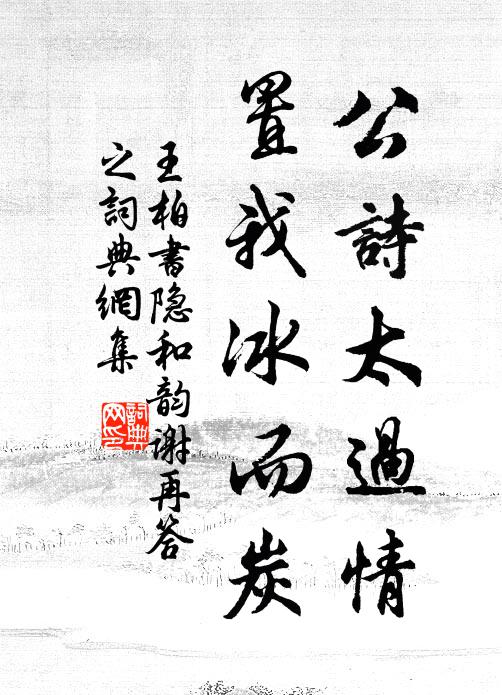 公詩太過情
置我冰而炭
王柏書隐和韵謝再答
之詞典網集
詞典网印